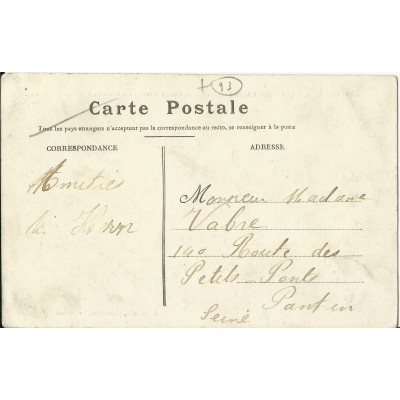 + 93
Carte Postale
Tous les pays étrangers n'acceptent pas la correspondance au recto, se renseigner à la poste
CORRESPONDANCE
ADRESSE
Amitié
Monsieur Madame
Vabre
140 Route des
Petits Ponts
Pantin
Seine